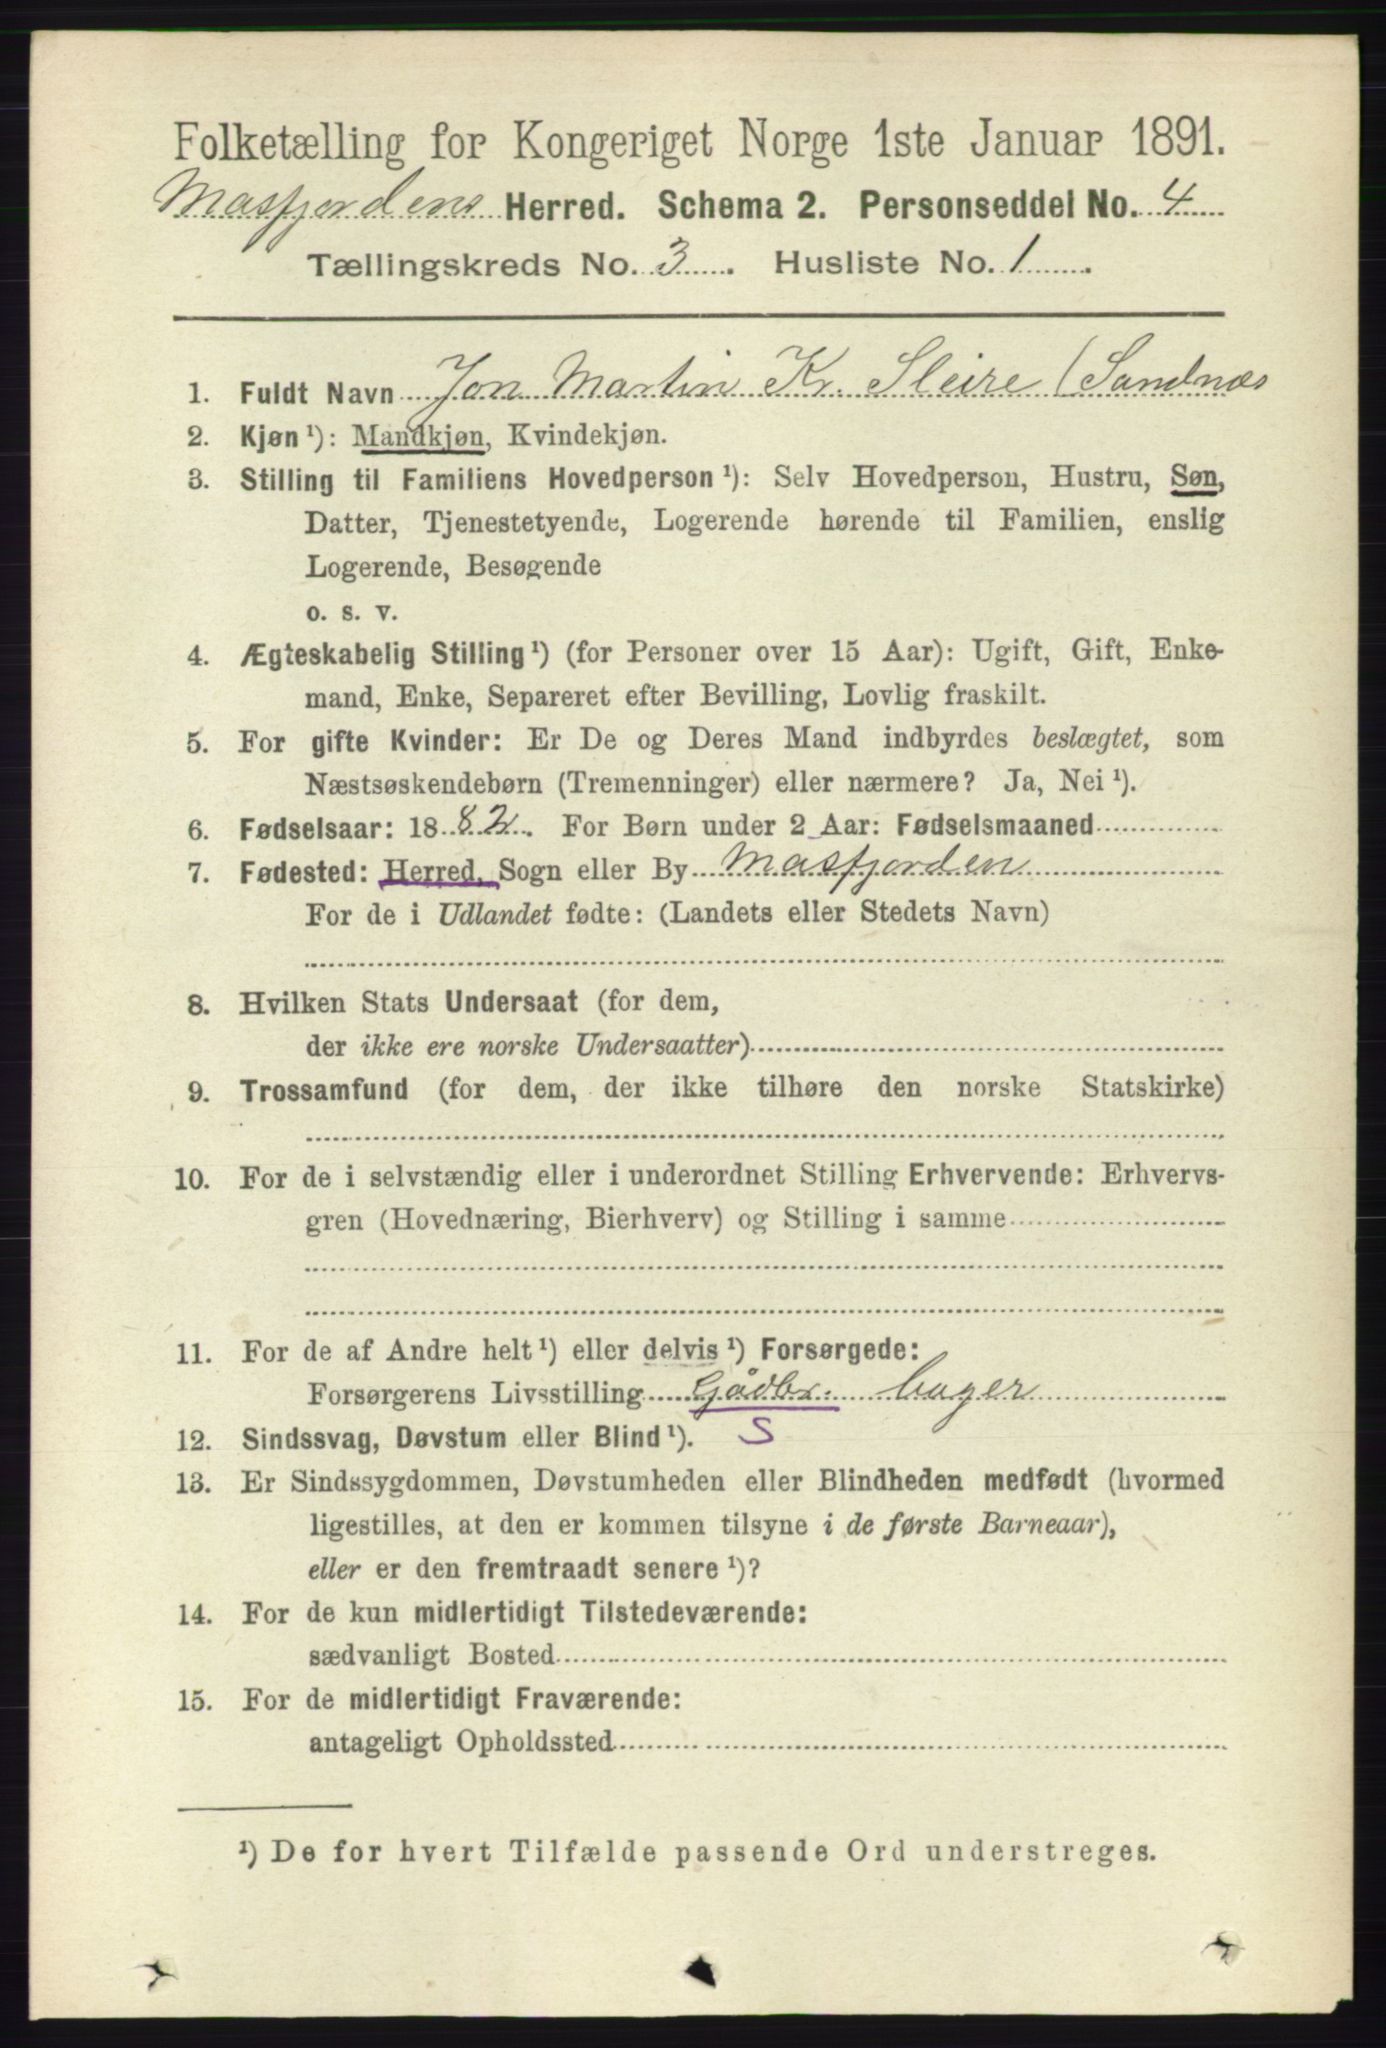 Folketælling for Kongeriget Norge 1ste Januar 1891.
Masfjordens Herred. Schema 2. Personseddel No. 4
Tællingskreds No. 3. Husliste No. 1.
1. Fuldt Navn Jon Martin Kr. Sleire (Sandnæs
2. Kjøn ¹): Mandkjøn, Kvindekjøn.
3. Stilling til Familiens Hovedperson ¹): Selv Hovedperson, Hustru, Søn,
Datter, Tjenestetyende, Logerende hørende til Familien, enslig
Logerende, Besøgende
o. s. v.
4. Ægteskabelig Stilling ¹) (for Personer over 15 Aar): Ugift, Gift, Enke-
mand, Enke, Separeret efter Bevilling, Lovlig fraskilt.
5. For gifte Kvinder: Er De og Deres Mand indbyrdes beslægtet, som
Næstsøskendebørn (Tremenninger) eller nærmere? Ja, Nei ¹).
6. Fødselsaar: 1882. For Børn under 2 Aar: Fødselsmaaned
7. Fødested: Herred, Sogn eller By Masfjorden
For de i Udlandet fødte: (Landets eller Stedets Navn)
8. Hvilken Stats Undersaat (for dem,
der ikke ere norske Undersaatter)
9. Trossamfund (for dem, der ikke tilhøre den norske Statskirke)
10. For de i selvstændig eller i underordnet Stilling Erhvervende: Erhvervs-
gren (Hovednæring, Bierhverv) og Stilling i samme
11. For de af Andre helt ¹) eller delvis ¹) Forsørgede:
Forsørgerens Livsstilling Gådbr.
12. Sindssvag, Døvstum eller Blind ¹). S
13. Er Sindssygdommen, Døvstumheden eller Blindheden medfødt (hvormed
ligestilles, at den er kommen tilsyne i de første Barneaar),
eller er den fremtraadt senere ¹)?
14. For de kun midlertidigt Tilstedeværende:
sædvanligt Bosted
15. For de midlertidigt Fraværende:
antageligt Opholdssted
¹) De for hvert Tilfælde passende Ord understreges.